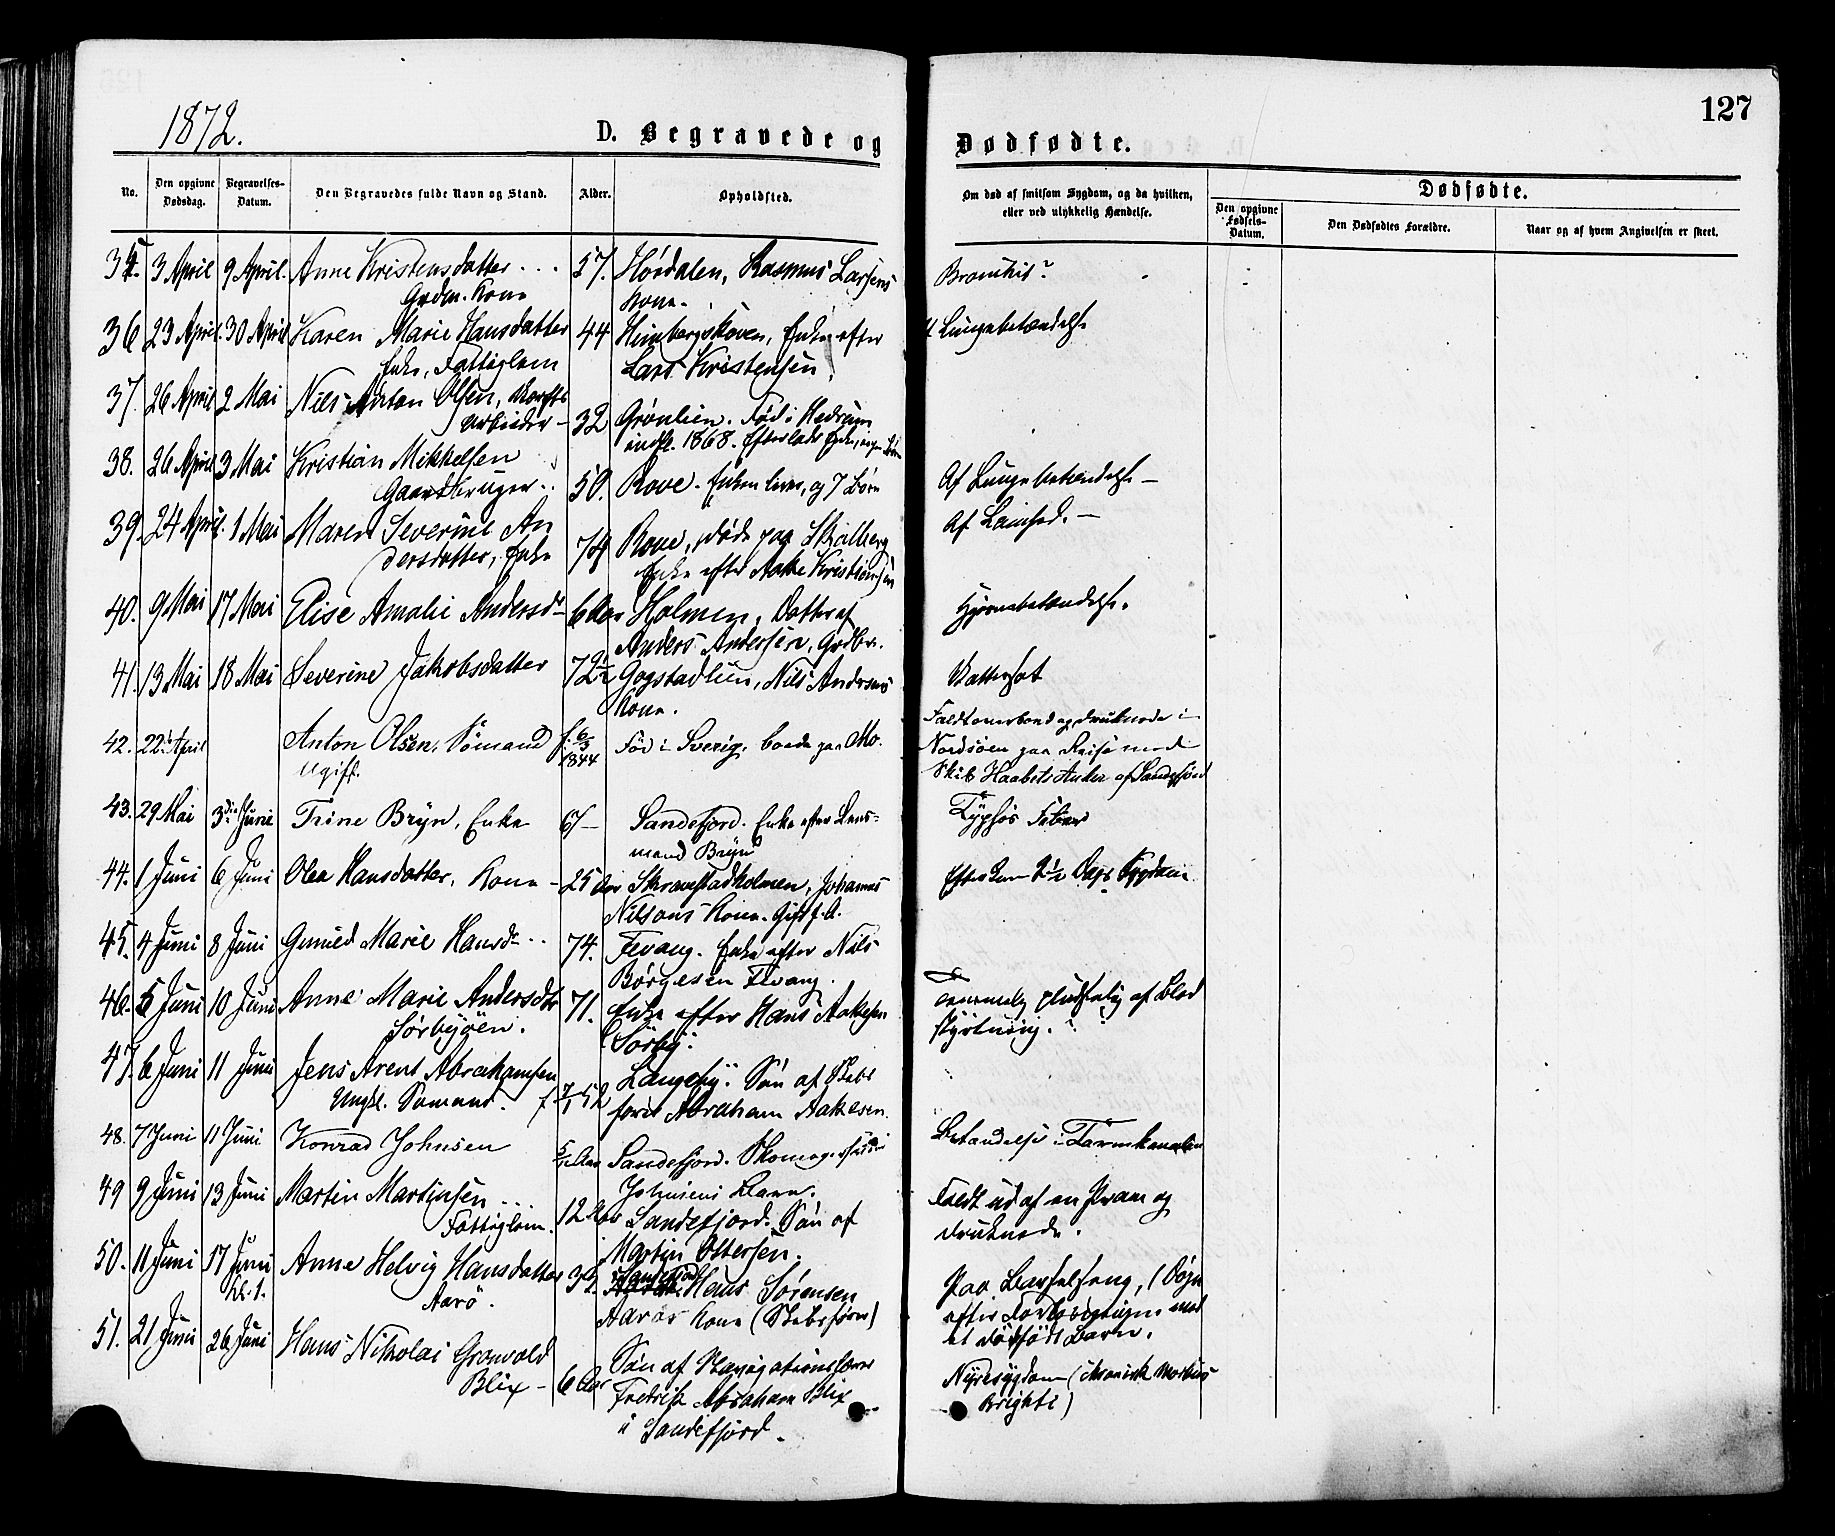 1872.
D. Begravede og Dødfødte.
127
No.
Den opgivne Dødsdag.
Begravelses-Datum.
Den Begravedes fulde Navn og Stand.
Alder.
Opholdsted.
Om død af smitsom Sygdom, og da hvilken, eller ved ulykkelig Hændelse.
Dødfødte.
Den opgivne Fødsels-Datum.
Den Dødfødtes Forældre.
Naar og af hvem Angivelsen er skeet.
35. 3 April 9 April. Anne Kristensdatter ... 57. Hørdalen, Rasmus Larsens
Grdm. Kone Kone.
36 23 April. 30 April Karen Marie Hansdatter 44 Himbergskoven, Enke efter Lungebetændelse
Enke, Fattiglem Lars Kristensen.
37. 26 April 2 Mai Nils Anton Olsen,
arbeider - 32 Grønlien. Fød i Hedrum
indfl. 1868. Efterlader Enke, ingen Børn
38. 26 April 3 Mai Kristian Mikkelsen
Gaardbruger. 50. Rove. Enken lever, og 7 Børn Af Lungebetændelse -
39. 24 April. 1 Mai Maren Severine An
dersdatter, Enke 74 Rove, døde paa Skjelberg
Enke efter Aake Kristiansen
40. 9 Mai 17 Mai Elise Amalie Andersdr 6 Aar Holmen, Datter af Hjernebetændelse.
Anders Andersen, Grdbr.
41. 13 Mai 18 Mai Severine Jakobsdatter 72½ Gogstadlien, Nils Andersens Vattersot
Kone.
42. 22 April Anton Olsen, Sømand f. 6/3 1844 Fød i Sverig, boede paa Mo. Faldt overbord og druknede i
Ugift. Nordsøen paa Reise med
Skib Haabets Anker af Sandefjord
43. 29 Mai 3die Juni Trine Bryn, Enke 67 - Sandefjord. Enke efter Lens=
mand Bryn Typhös Feber
44. 1 Juni 6 Juni Olea Hansdatter, Kone - 25 Aar Skravestadholmen, Johannes Efter kun 2½ Dags Sygdom.
Nilsens Kone. Gift f. A.
45. 4 Juni 8 Juni Gunild Marie Hansdr. 74. Fevang. Enke efter Nils
Børgesen Fevang.
46. 5 Juni 10 Juni Anne Marie Andersdtr 71. Enke efter Hans Aakesen pludselig af Blod
Sørbyøen. Sørby. styrtning.
47. 6 Juni 11 Juni Jens Arent Abrahamsen
Ungk. Sømand. f. 7/1 52 Langeby. Søn af Skibs
fører Abraham Aakesen.
48. 7 Juni 11 Juni Konrad Johnsen Aar Sandefjord. Betændelse i Tarmkanalen
Johnsens Barn.
49 9 Juni 13 Juni Martin Martinsen ... Faldt ud af en Pram og
Fattiglem. 12 Aar Sandefjord. Søn af druknede.
Martin Ottersen.
50. 11 Juni 17 Juni Anne Helvig Hansdatter Hans Sørensen Paa Barselseng, 1 Døgn
kl. 1. Aarø. Aarøs Kone (Skibsfører) efter Forløsningen med
et dødfødt Barn.
51. 21 Juni 26 Juni Hans Nikolai Gronvold Søn af Navigationslærer Nyresygdom (chronisk Morbus
Blix - 6 Aar Fredrik Abraham Blix Brighti)
i Sandefjord.